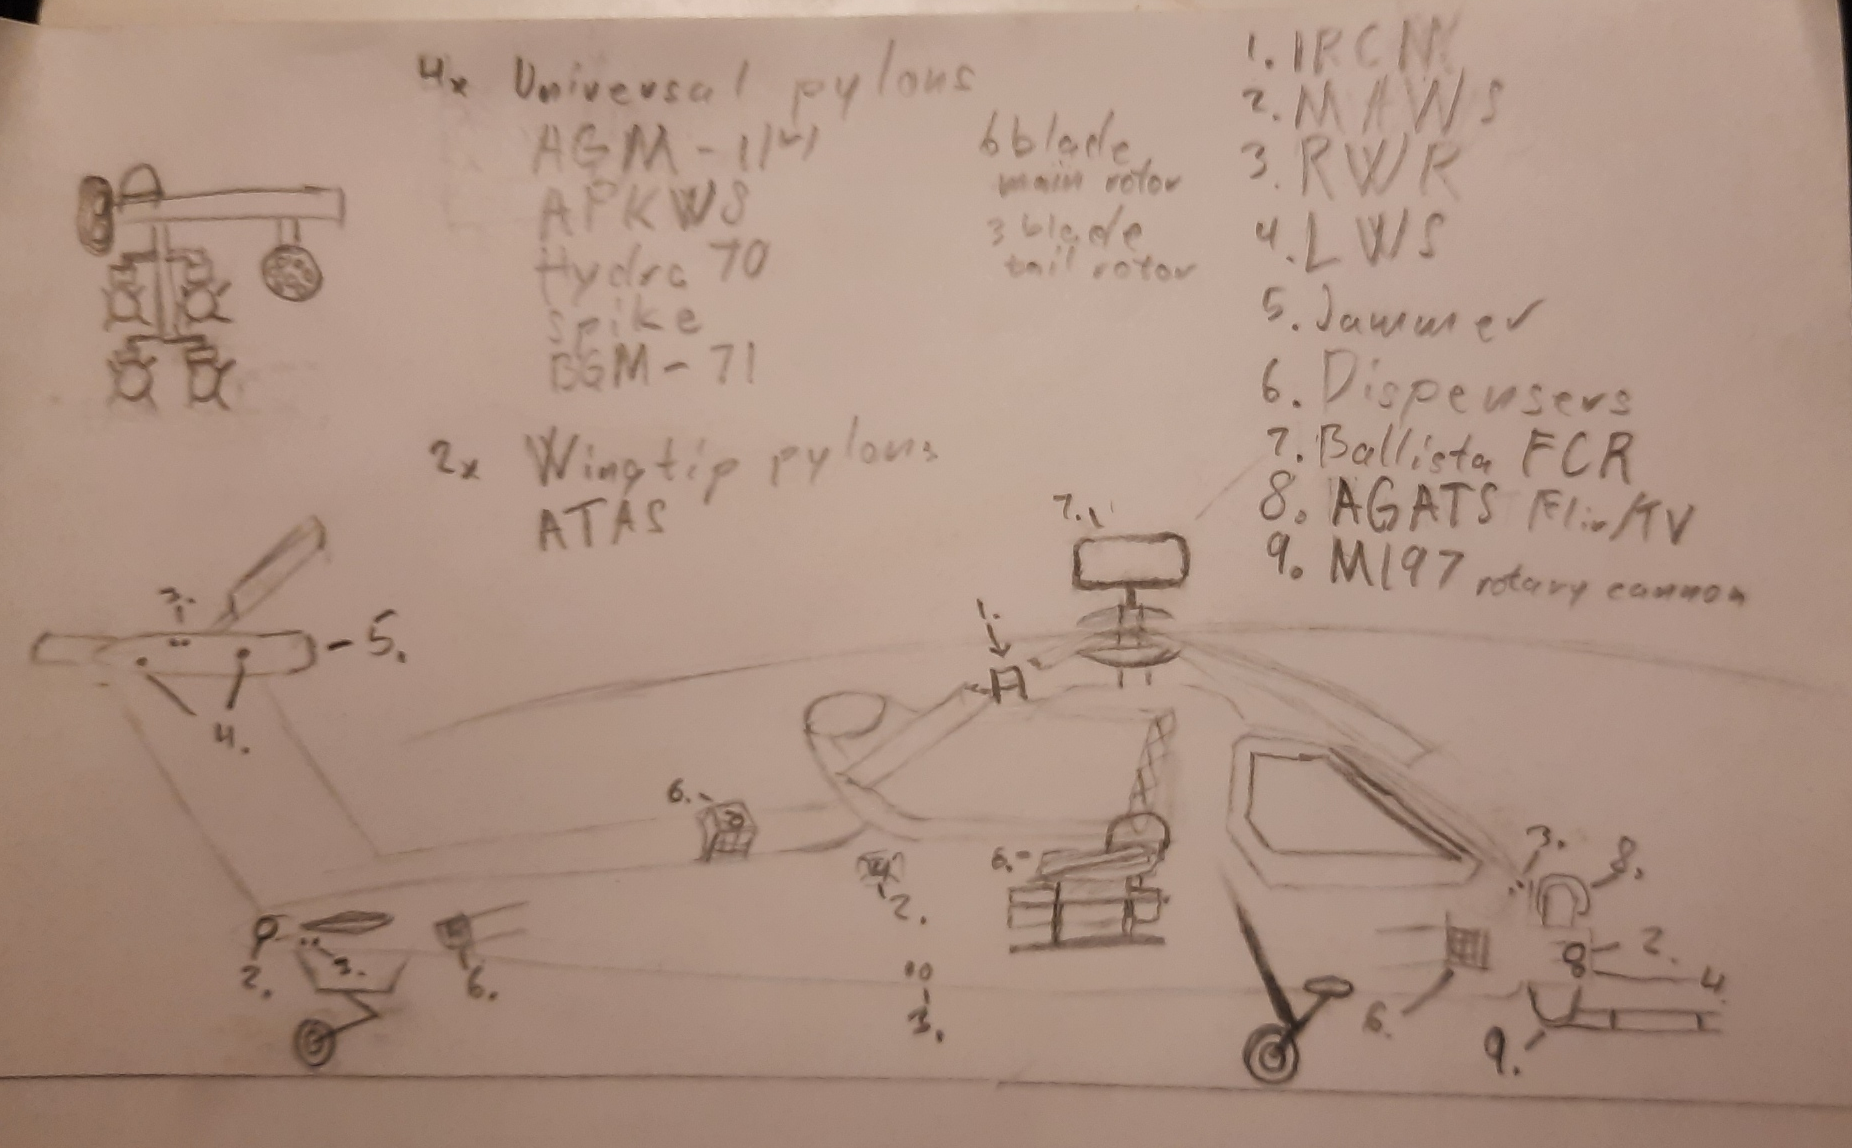 4x Universal pylons
AGM-114
APKWS
Hydra 70
Spike
BGM-71
2x Wingtip pylons
ATAS
6 blade
main rotor
3 blade
tail rotor
1. IRCM
2. MAWS
3. RWR
4. LWS
5. Jammer
6. Dispensers
7. Ballista FCR
8. AGATS Flir/TV
9. M197 rotary cannon
7.
1.
3.
5.
4.
6.
6.
2.
3.
8.
2.
4
2.
3.
6.
3.
6.
9.